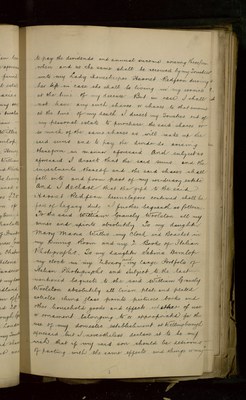 to pay the dividends and annual income arising therefrom
when and as the same shall be received by my Trustees
unto my Lady housekeeper Hannah Redfearn during
her life in case she shall be living in my service
at the time of my decease But in case I shall
not have any such shares or shares to that amount
at the time of my death I direct my Trustees out of
my personal estate to purchase the said shares or
so much of the same shares as will make up the
said amount and to pay the dividends arising
therefrom in manner aforesaid And subject as
aforesaid I direct that the said sums and the
investments thereof and the said shares shall
fall into and form part of my residuary estate
And I declare that the gifts to the said
Hannah Redfearn hereinbefore contained shall be
free of legacy duty I further bequeath as follows
To the said William Gamely Worleton all my
wines and spirits absolutely To my daughter
Mary Maria Wilkie my Clock and Candelabra in
my Dining Room and my 2 Books of Italian
Photographs To my daughter Selina
my clock in my Library my large Portfolio of
Italian Photographs and subject to the last
mentioned bequests to the said William Gamely
Worleton absolutely all linen plate and plated
articles china glass prints pictures books and
other household goods and effects
or ornament belonging to or appropriated for the
use of my domestic establishment at
aforesaid but I nevertheless declare it to be my
wish that if my said son should be desirous
of parting with the same effects and things or any